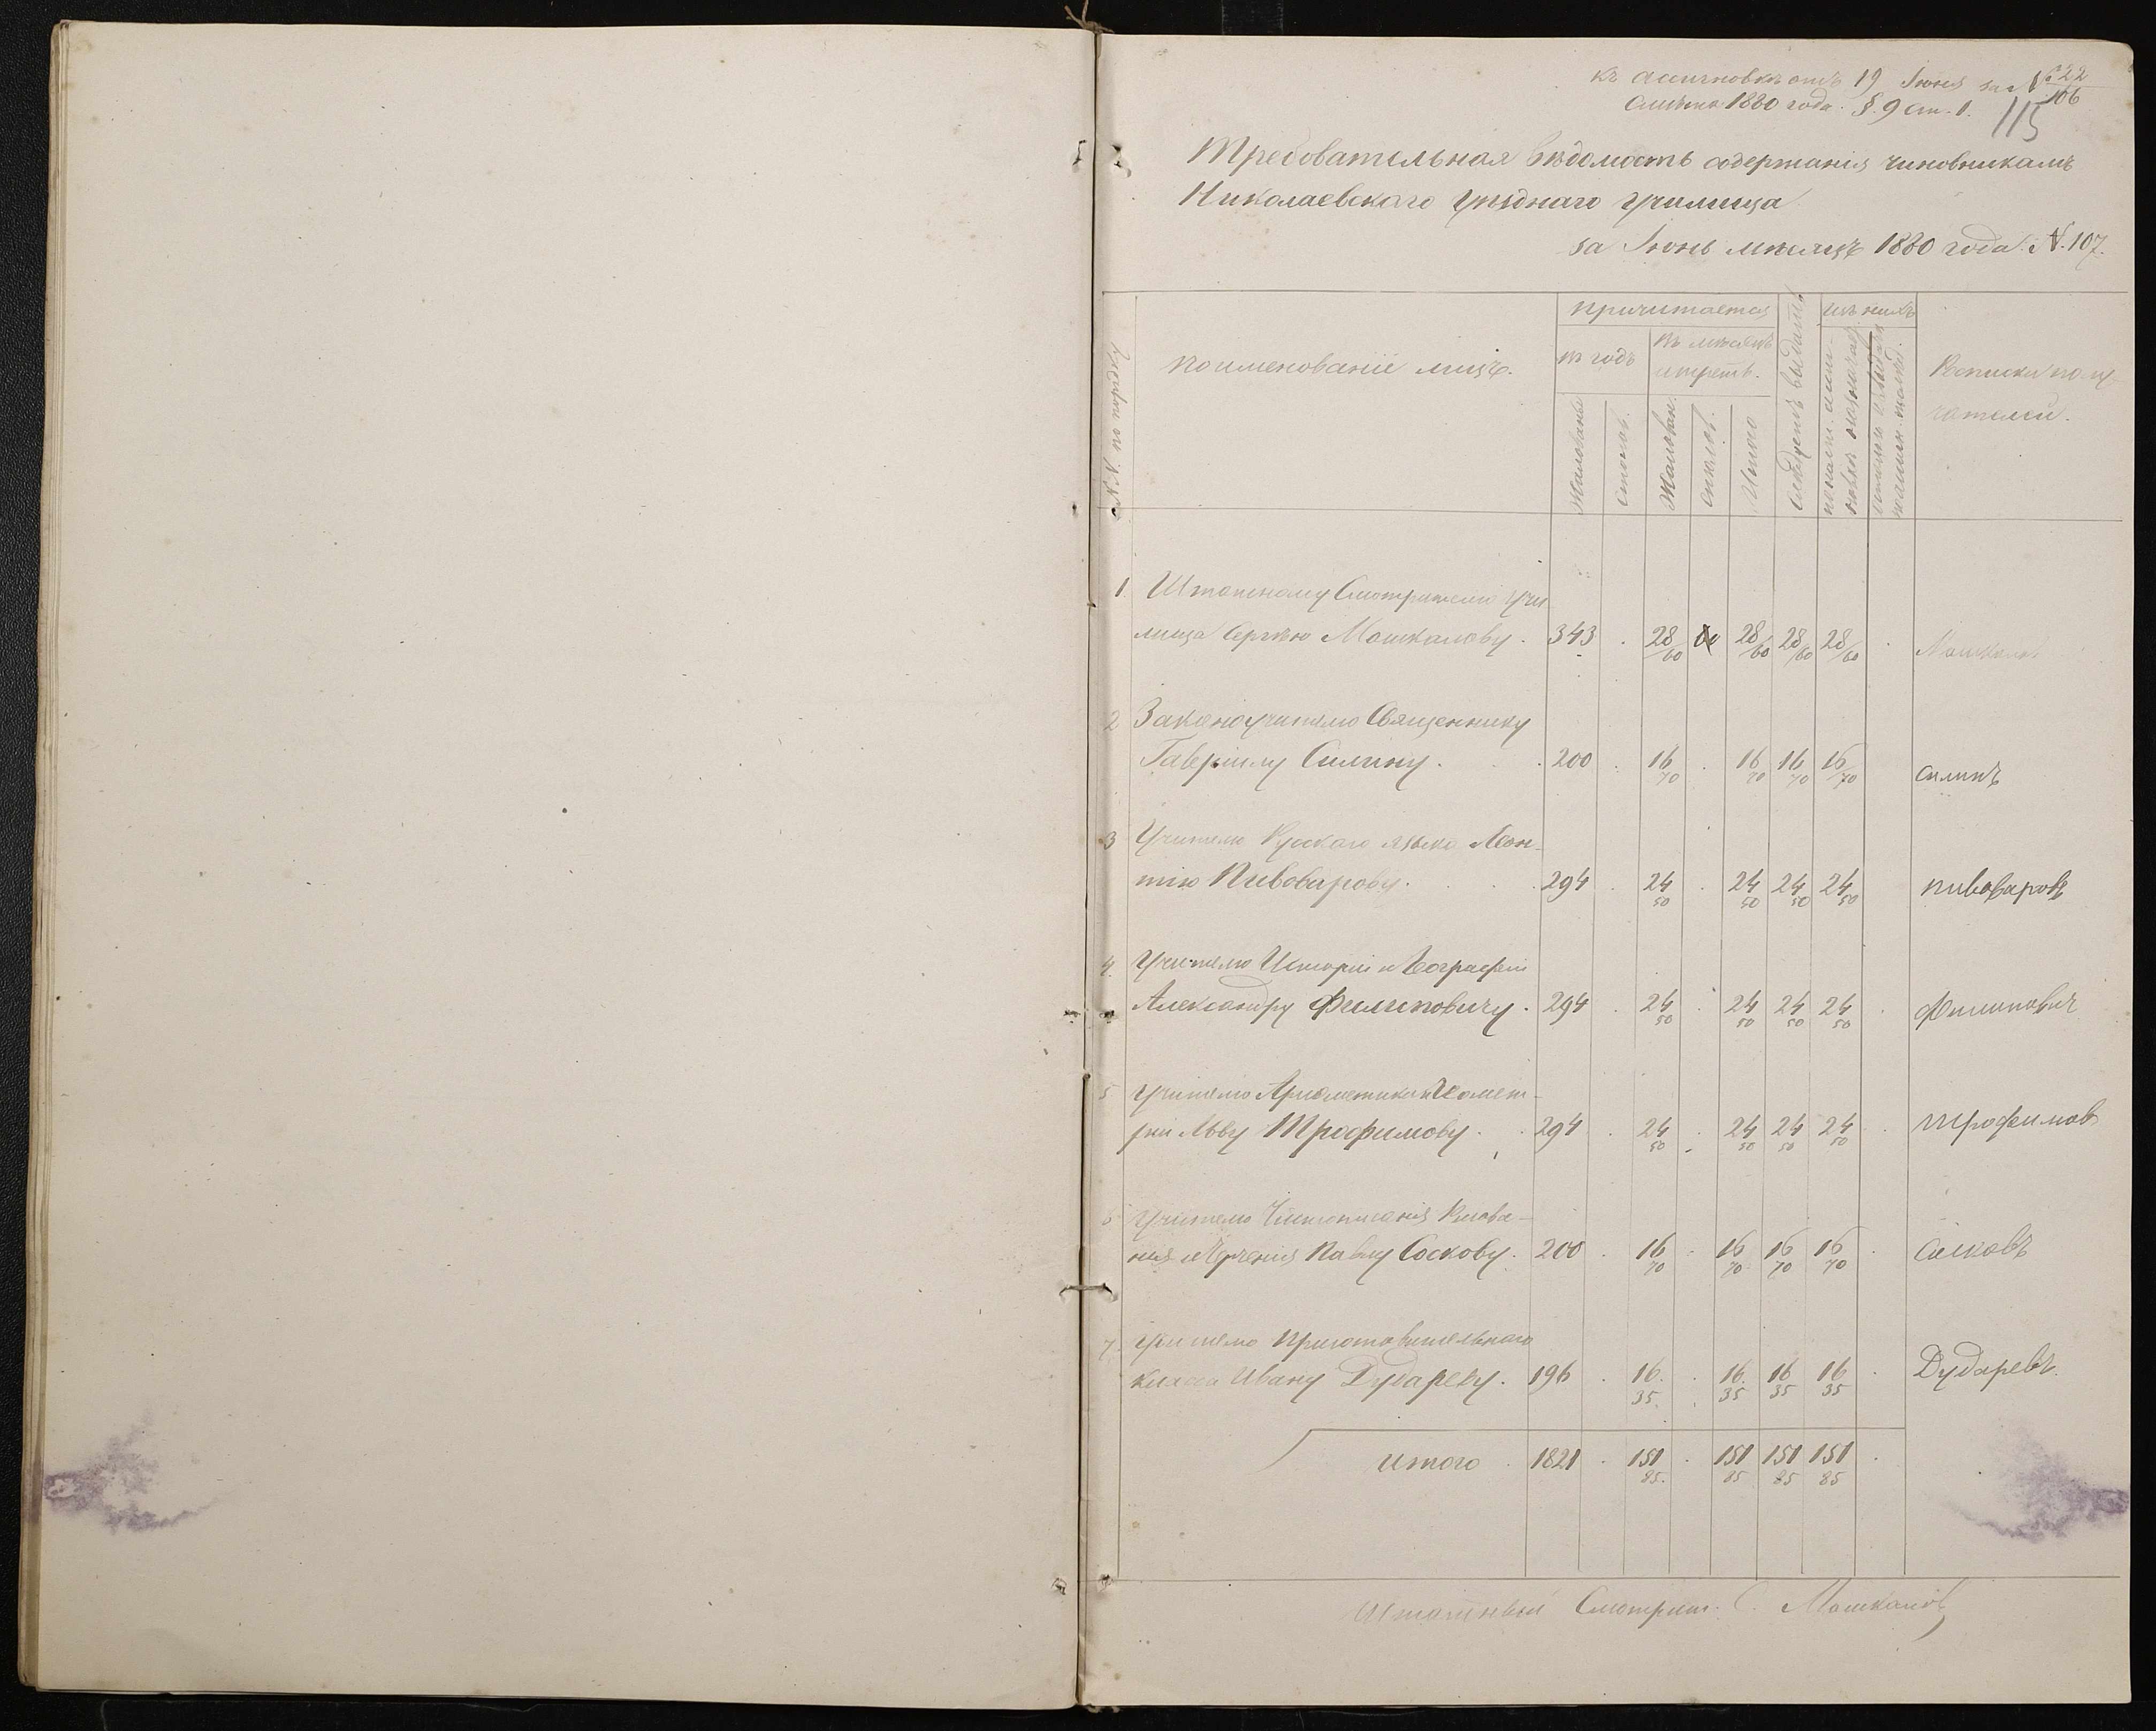 къ ассигновкѣ отъ 19 Іюня за № 22/106
Смѣта 1880 года. §. 9 ст. 1.
115
Требовательная вѣдомость содержанія чиновникамъ
Николаевскаго Уѣзднаго Училища
за Іюнь мѣсяцъ 1880 года. N. 107.
N.N. по порядку
Поименованіе лицъ.
Причитается
въ годъ
Въ мѣсяцъ
и треть.
Жалованья
столов.
Жалован.
столов.
Итого
Слѣдуетъ выдать
изъ нихъ
Росписки полу-
чателей.
1. Штатному Смотрителю Учи-
лища Сергѣю Мошкалову. 343 . 28/60 28/60 28/60 28/60 . Мошкаловъ
2 Законоучителю Священнику
Гавріилу Силину. 200 . 16/70 . 16/70 16/70 16/70 Силинъ
3 Учителю Русскаго языка Леон-
тію Пивоварову. 294 . 24/50 . 24/50 24/50 24/50 Пивоваровъ
4. Учителю Исторіи и Географіи
Александру Филиповичу. 294 . 24/50 . 24/50 24/50 24/50 . Филиповичъ
5 Учителю Ариѳметики и Геомет-
ріи Льву Трофимову. 294 . 24/50 . 24/50 24/50 24/50 . Трофимовъ
6 Учителю Чистописанія Рисова-
нія и Черченія Павлу Соскову. 200 . 16/70 . 16/70 16/70 16/70 . Сосковъ
7. Учителю Приготовительнаго
класса Ивану Дудареву. 196 . 16/35 . 16/35 16/35 16/35 . Дударевъ.
Итого . 1821 . 151/85 . 151/85 151/85 151/85 .
Штатный Смотрит. С. Мошкаловъ